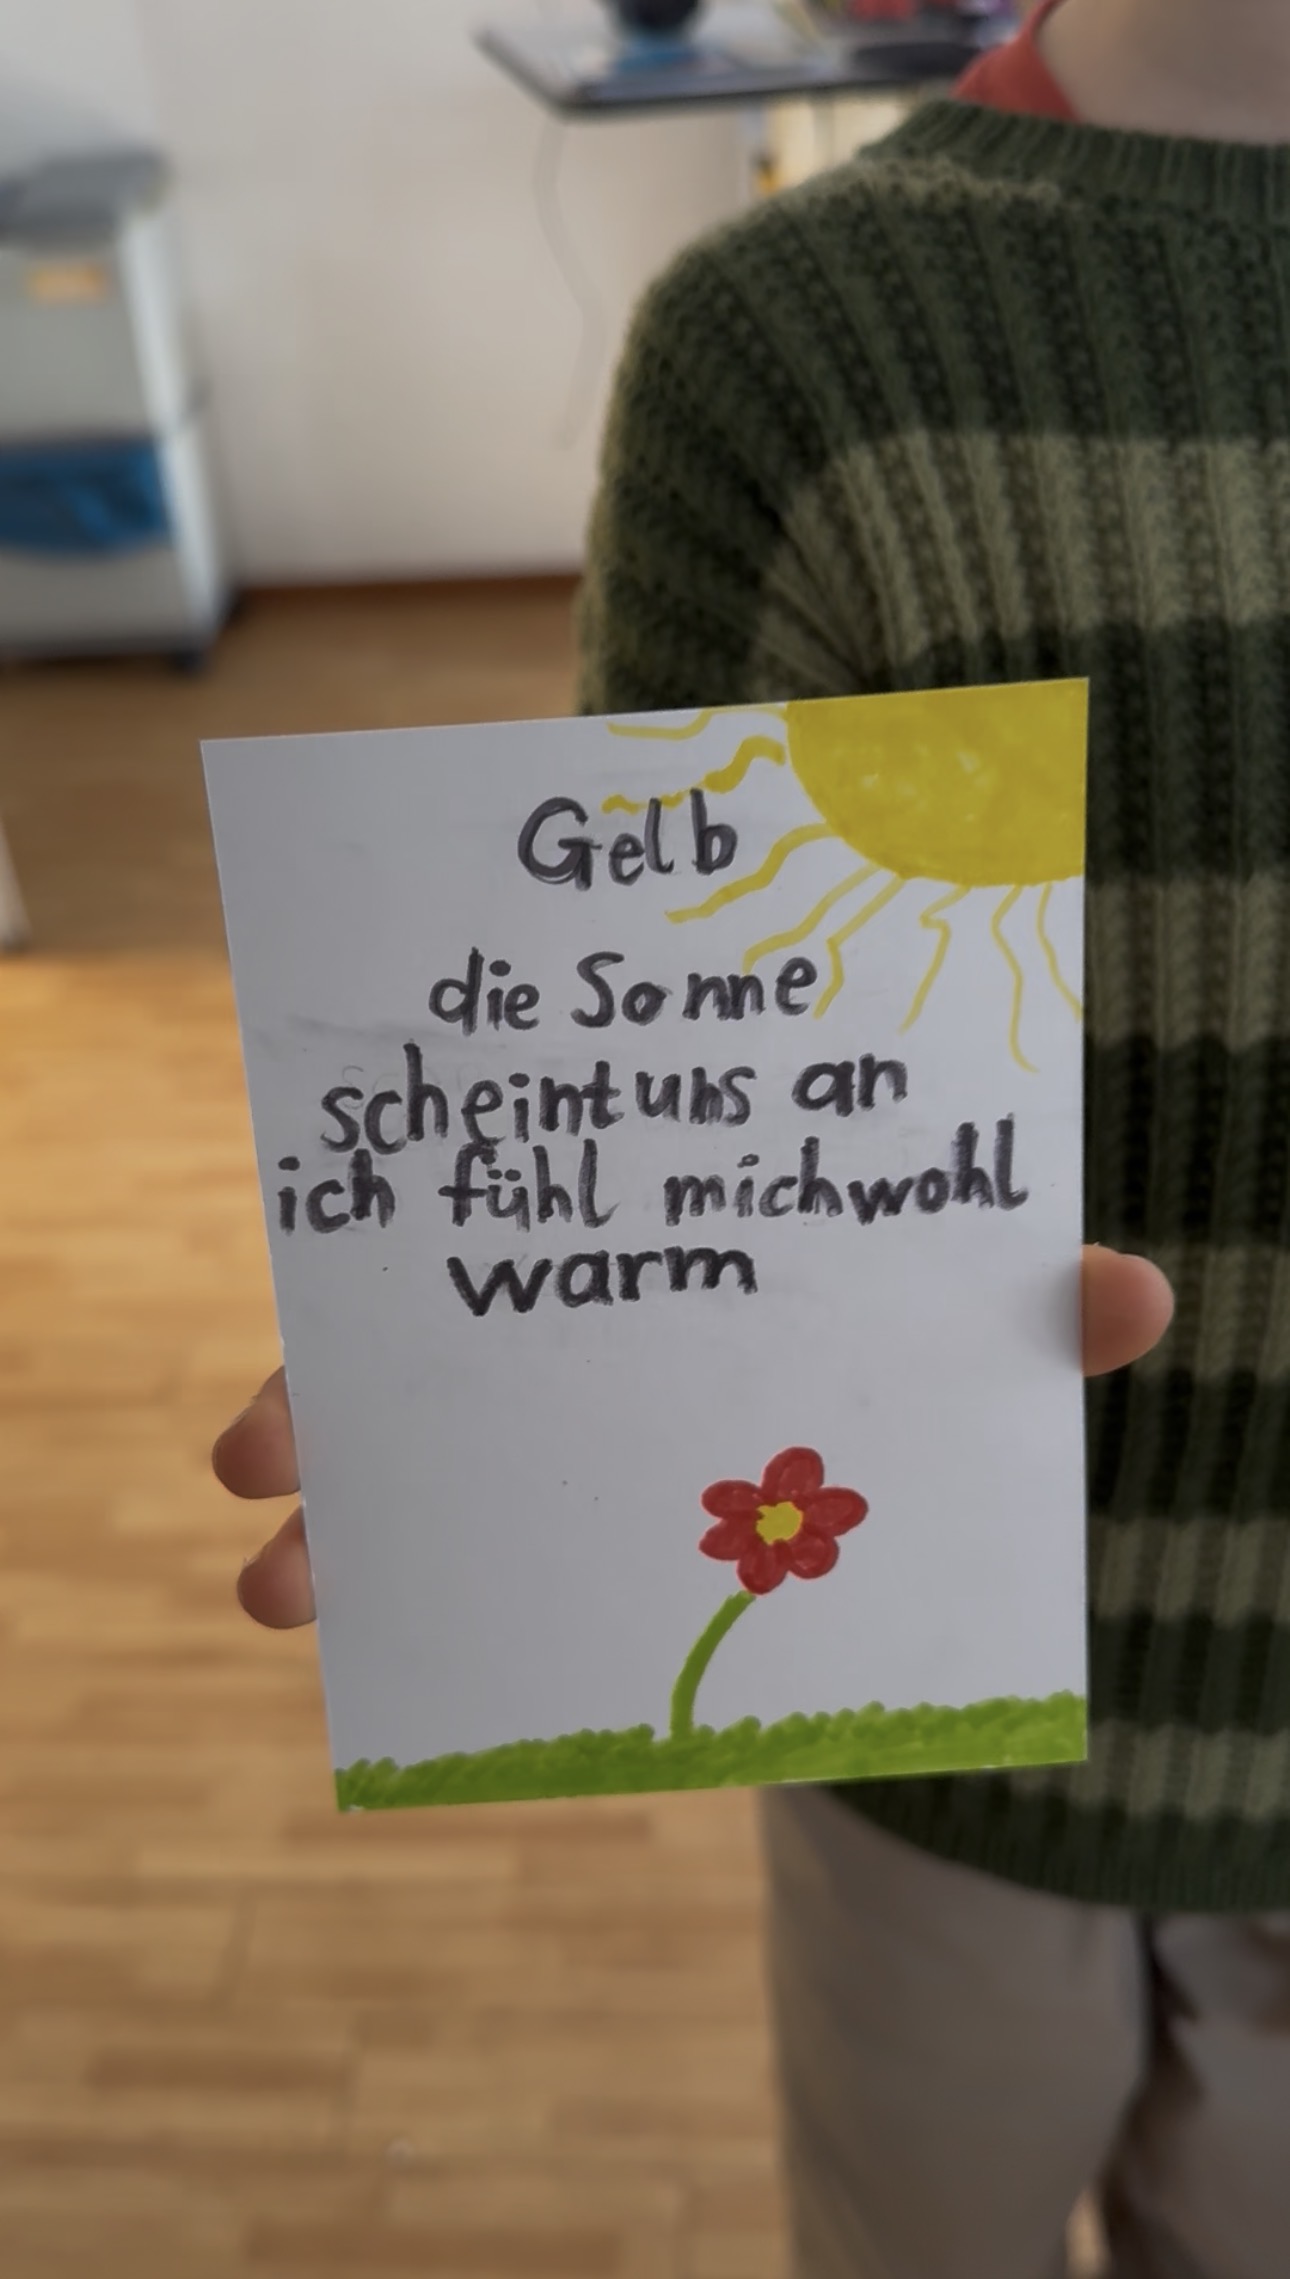 Gelb
die Sonne
scheint uns an
ich fühl mich wohl
warm